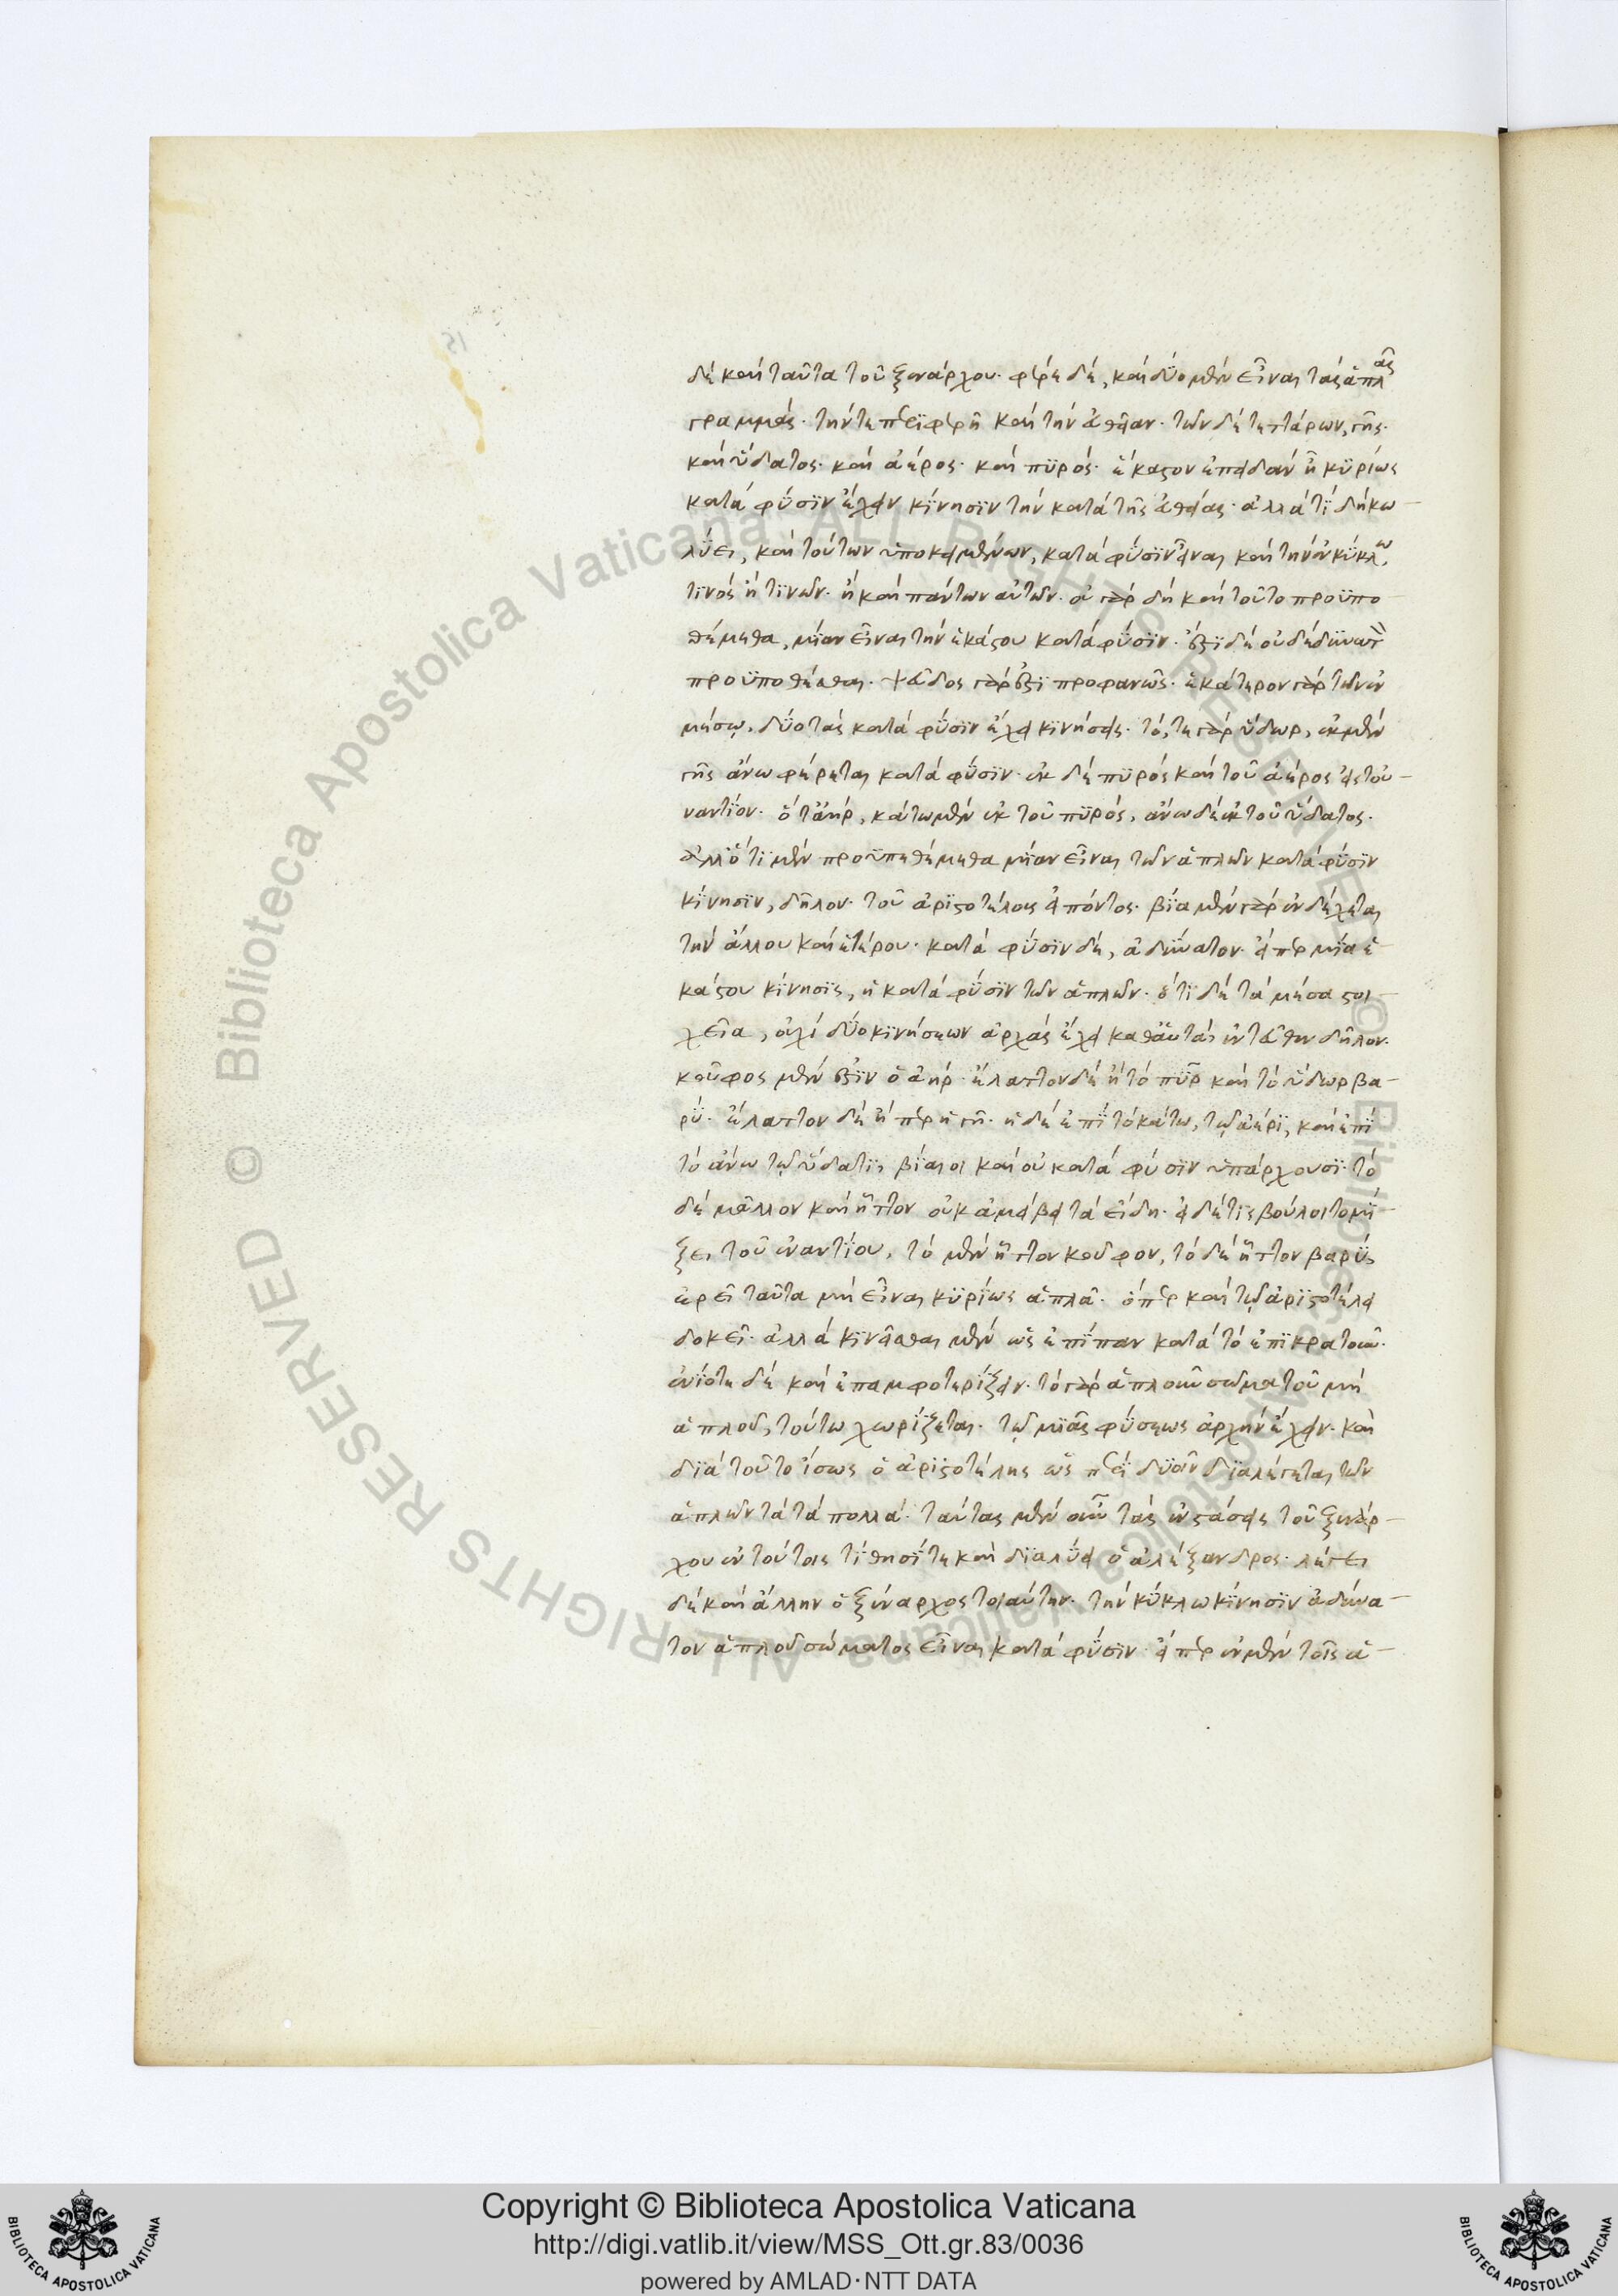 δὲ καὶ ταῦτα τοῦ ξενάρχου. φέρε δὲ, καὶ δύο μὲν εἶναι τὰς ἁπλᾶς
γραμμάς. τήν τε περιφερῆ καὶ τὴν εὐθεῖαν. τῶν δὲ τεττάρων, γῆς.
καὶ ὕδατος. καὶ ἀέρος. καὶ πυρός. ἕκαστον ἐπειδὰν ᾖ κυρίως
κατὰ φύσιν ἔχειν κίνησιν τὴν κατὰ τῆς εὐθείας. ἀλλὰ τί δὴ κω
λύει, καὶ τούτων ὑποκειμένων, κατὰ φύσιν εἶναι καὶ τὴν ἐν κύκλω,
τινὸς ἢ τινῶν. ἢ καὶ πάντων αὐτῶν. οὐ γὰρ δὴ καὶ τοῦτο προϋπο
θέμεθα, μίαν εἶναι τὴν ἑκάστου κατὰ φύσιν. ἔστι δὲ οὐδὲ δυνατὸν
προϋποθέσθαι. ψεῦδος γάρ ἐστι προφανῶς. ἑκάτερον γὰρ τῶν ἐν
μέσῳ, δύο τὰς κατὰ φύσιν ἔχει κινήσεις. τό, τε γὰρ ὕδωρ, ἐκ μὲν
γῆς ἄνω φέρεται κατὰ φύσιν. ἐκ δὲ πυρὸς καὶ τοῦ ἀέρος εἰς τοὐ
ναντίον. ὅ τ' ἀὴρ, κάτω μὲν ἐκ τοῦ πυρός, ἄνω δὲ ἐκ τοῦ ὕδατος.
ἀλλ' ὅτι μὲν προϋπεθέμεθα μίαν εἶναι τῶν ἁπλῶν κατὰ φύσιν
κίνησιν, δῆλον. τοῦ ἀριστοτέλους εἰπόντος. βία μὲν γὰρ ἐνδέχεται
τὴν ἄλλου καὶ ἑτέρου. κατὰ φύσιν δὲ, ἀδύνατον. εἴπερ μία ἑ
κάστου κίνησις, ἡ κατὰ φύσιν τῶν ἁπλῶν. ὅτι δὲ τὰ μέσα στοι
χεῖα, οὐχὶ δύο κινήσεων ἀρχὰς ἔχει καθ' αὑτὰ, ἐντεῦθεν δῆλον.
κοῦφος μέν ἐστιν ὁ ἀήρ. ἔλαττον δὲ ἢ τὸ πῦρ καὶ τὸ ὕδωρ βα
ρύ. ἔλαττον δὲ ἤπερ ἡ γῆ. ἡ δὲ ἐπὶ τὸ κάτω, τῷ ἀέρι, καὶ ἐπὶ
τὸ ἄνω τῷ ὕδατι, βίαιοι καὶ οὐ κατὰ φύσιν ὑπάρχουσι. τὸ
δὲ μᾶλλον καὶ ἧττον οὐκ ἀμείβει τὰ εἴδη. εἰ δέ τις βούλοιτο μί
ξει τοῦ ἐναντίου, τὸ μὲν ἧττον κοῦφον, τὸ δὲ ἧττον βαρὺ,
ἐρεῖ ταῦτα μὴ εἶναι κυρίως ἁπλᾶ. ὅπερ καὶ τῷ ἀριστοτέλει
δοκεῖ. ἀλλὰ κινεῖσθαι μὲν ὡς ἐπίπαν κατὰ τὸ ἐπικρατοῦν.
ἐνίοτε δὲ καὶ ἐπαμφοτερίζειν. τὸ γὰρ ἁπλοῦν σῶμα τοῦ μὴ
ἁπλοῦ, τούτω χωρίζεται. τῷ μιᾶς φύσεως ἀρχὴν ἔχειν. καὶ
διὰ τοῦτο ἴσως ὁ ἀριστοτέλης ὡς περὶ δυοῖν διαλέγεται τῶν
ἁπλῶν τὰ τὰ πολλά. ταύτας μὲν οὖν τὰς ἐνστάσεις τοῦ ξενάρ
χου ἐν τούτοις τίθησί τε καὶ διαλύει ὁ ἀλέξανδρος. λέγει
δὲ καὶ ἄλλην ὁ ξέναρχος τοιαύτην. τὴν κύκλω κίνησιν ἀδύνα
τον ἁπλοῦ σώματος εἶναι κατὰ φύσιν. εἴπερ ἐν μὲν τοῖς ἁ
Copyright © Biblioteca Apostolica Vaticana
http://digi.vatlib.it/view/MSS_Ott.gr.83/0036
powered by AMLAD·NTT DATA